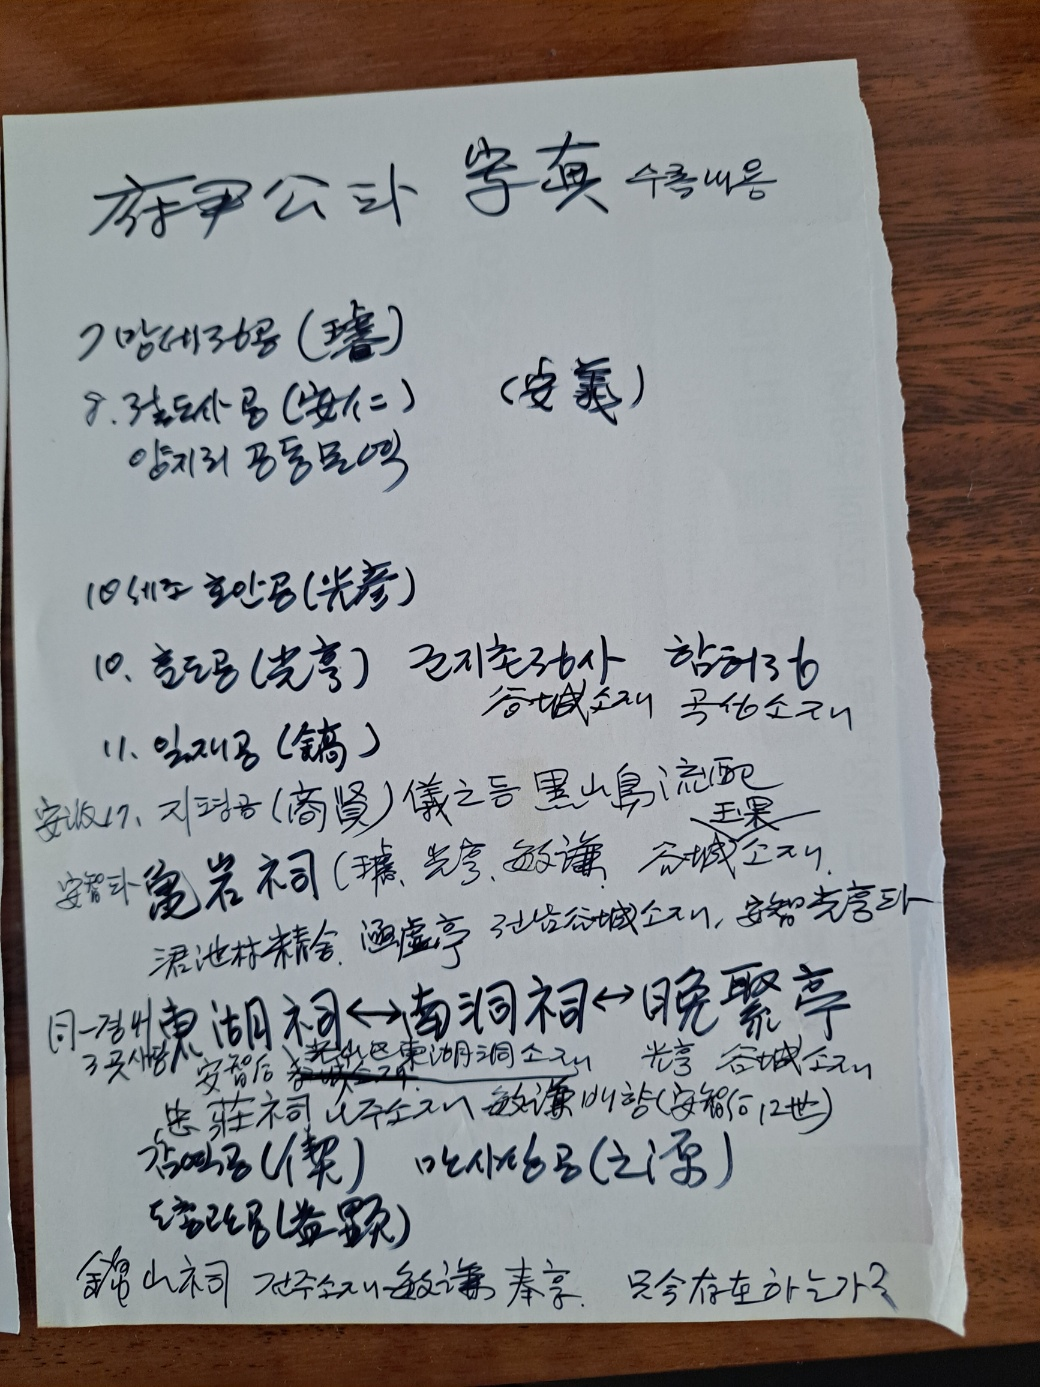 府尹公파 写真 수록내용
7 망세정공 (璿)
8. 절도사공 (安仁) (安義)
양지리 공동묘역
10세조 호안공 (光彦)
10. 효도공 (光亨) 군지촌정사 함허정
谷城소재 곡성소재
11. 일재공 (鎬)
17. 지평공 (商賢) 儀之등 黑山島 流配
玉果
安智파 龜岩祠 (璿, 光亨, 敏謙, 谷城소재,
涒池村精舍, 涵虛亭 전남谷城소재, 安智光亨파
同一경내 東湖祠 ↔ 南洞祠 ↔ 晩聚亭
3곳 安智后 東湖洞소재 光亨 谷城소재
忠莊祠 나주소재 敏謙 배향 (安智后 12世)
감역공 (偰) 만사당공 (之源)
도총관공 (益顯)
山祠 전주소재 敏謙 奉享. 只今存在하는가?